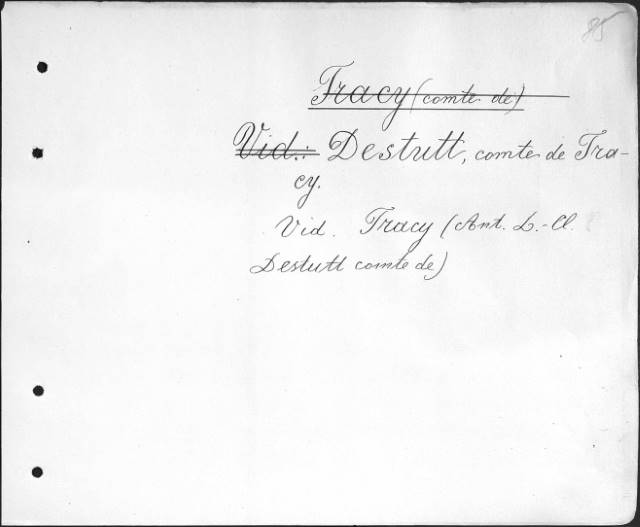 85
Tracy (comte de)
Vid.: Destutt, comte de Tra-
cy.
Vid. Tracy (Ant. L.-Cl.
Destutt comte de)